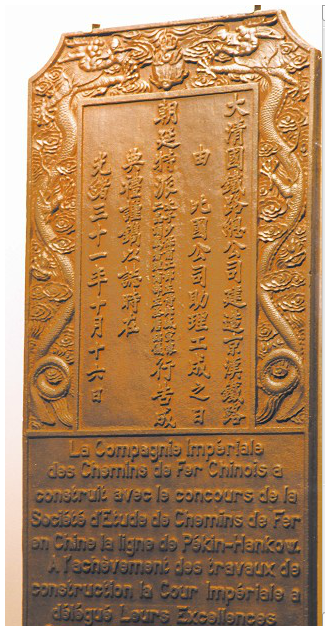 大清國鐵路總公司建造京漢鐵路
由 比國公司助理工成之日
朝廷特派 行告成
典禮謹鐫以誌時在
光緒三十一年十月十六日
La Compagnie Impériale
des Chemins de Fer Chinois a
construit avec le concours de la
Société d'Etude de Chemins de Fer
en Chine la ligne de Pékin-Hankow.
A l'achèvement des travaux de
construction la Cour Impériale a
délégué Leurs Excellences